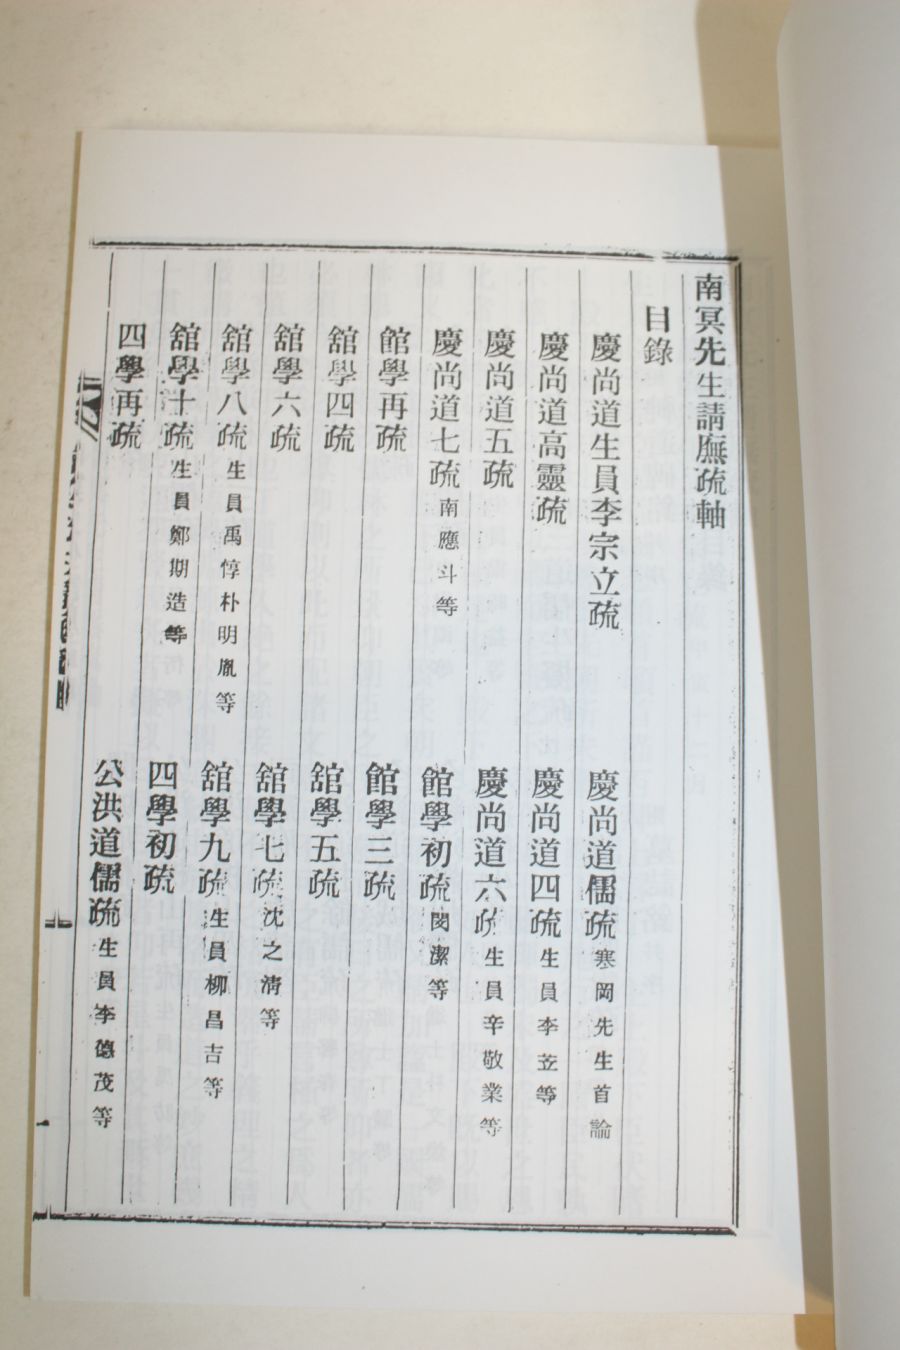 南冥先生請廡疏軸
目錄
慶尚道生員李宗立疏 慶尚道儒疏 寒岡先生首論
慶尚道高靈疏 慶尚道四疏 生員李等
慶尚道五疏 慶尚道六疏 生員辛敬業等
慶尚道七疏 南應斗等 館學初疏 閔潔等
館學再疏 館學三疏
舘學四疏 舘學五疏
舘學六疏 舘學七疏 沈之清等
舘學八疏 生員禹惇朴明胤等 舘學九疏 生員柳昌吉等
舘學十疏 生員鄭期造等 四學初疏
四學再疏 公洪道儒疏 生員李德茂等